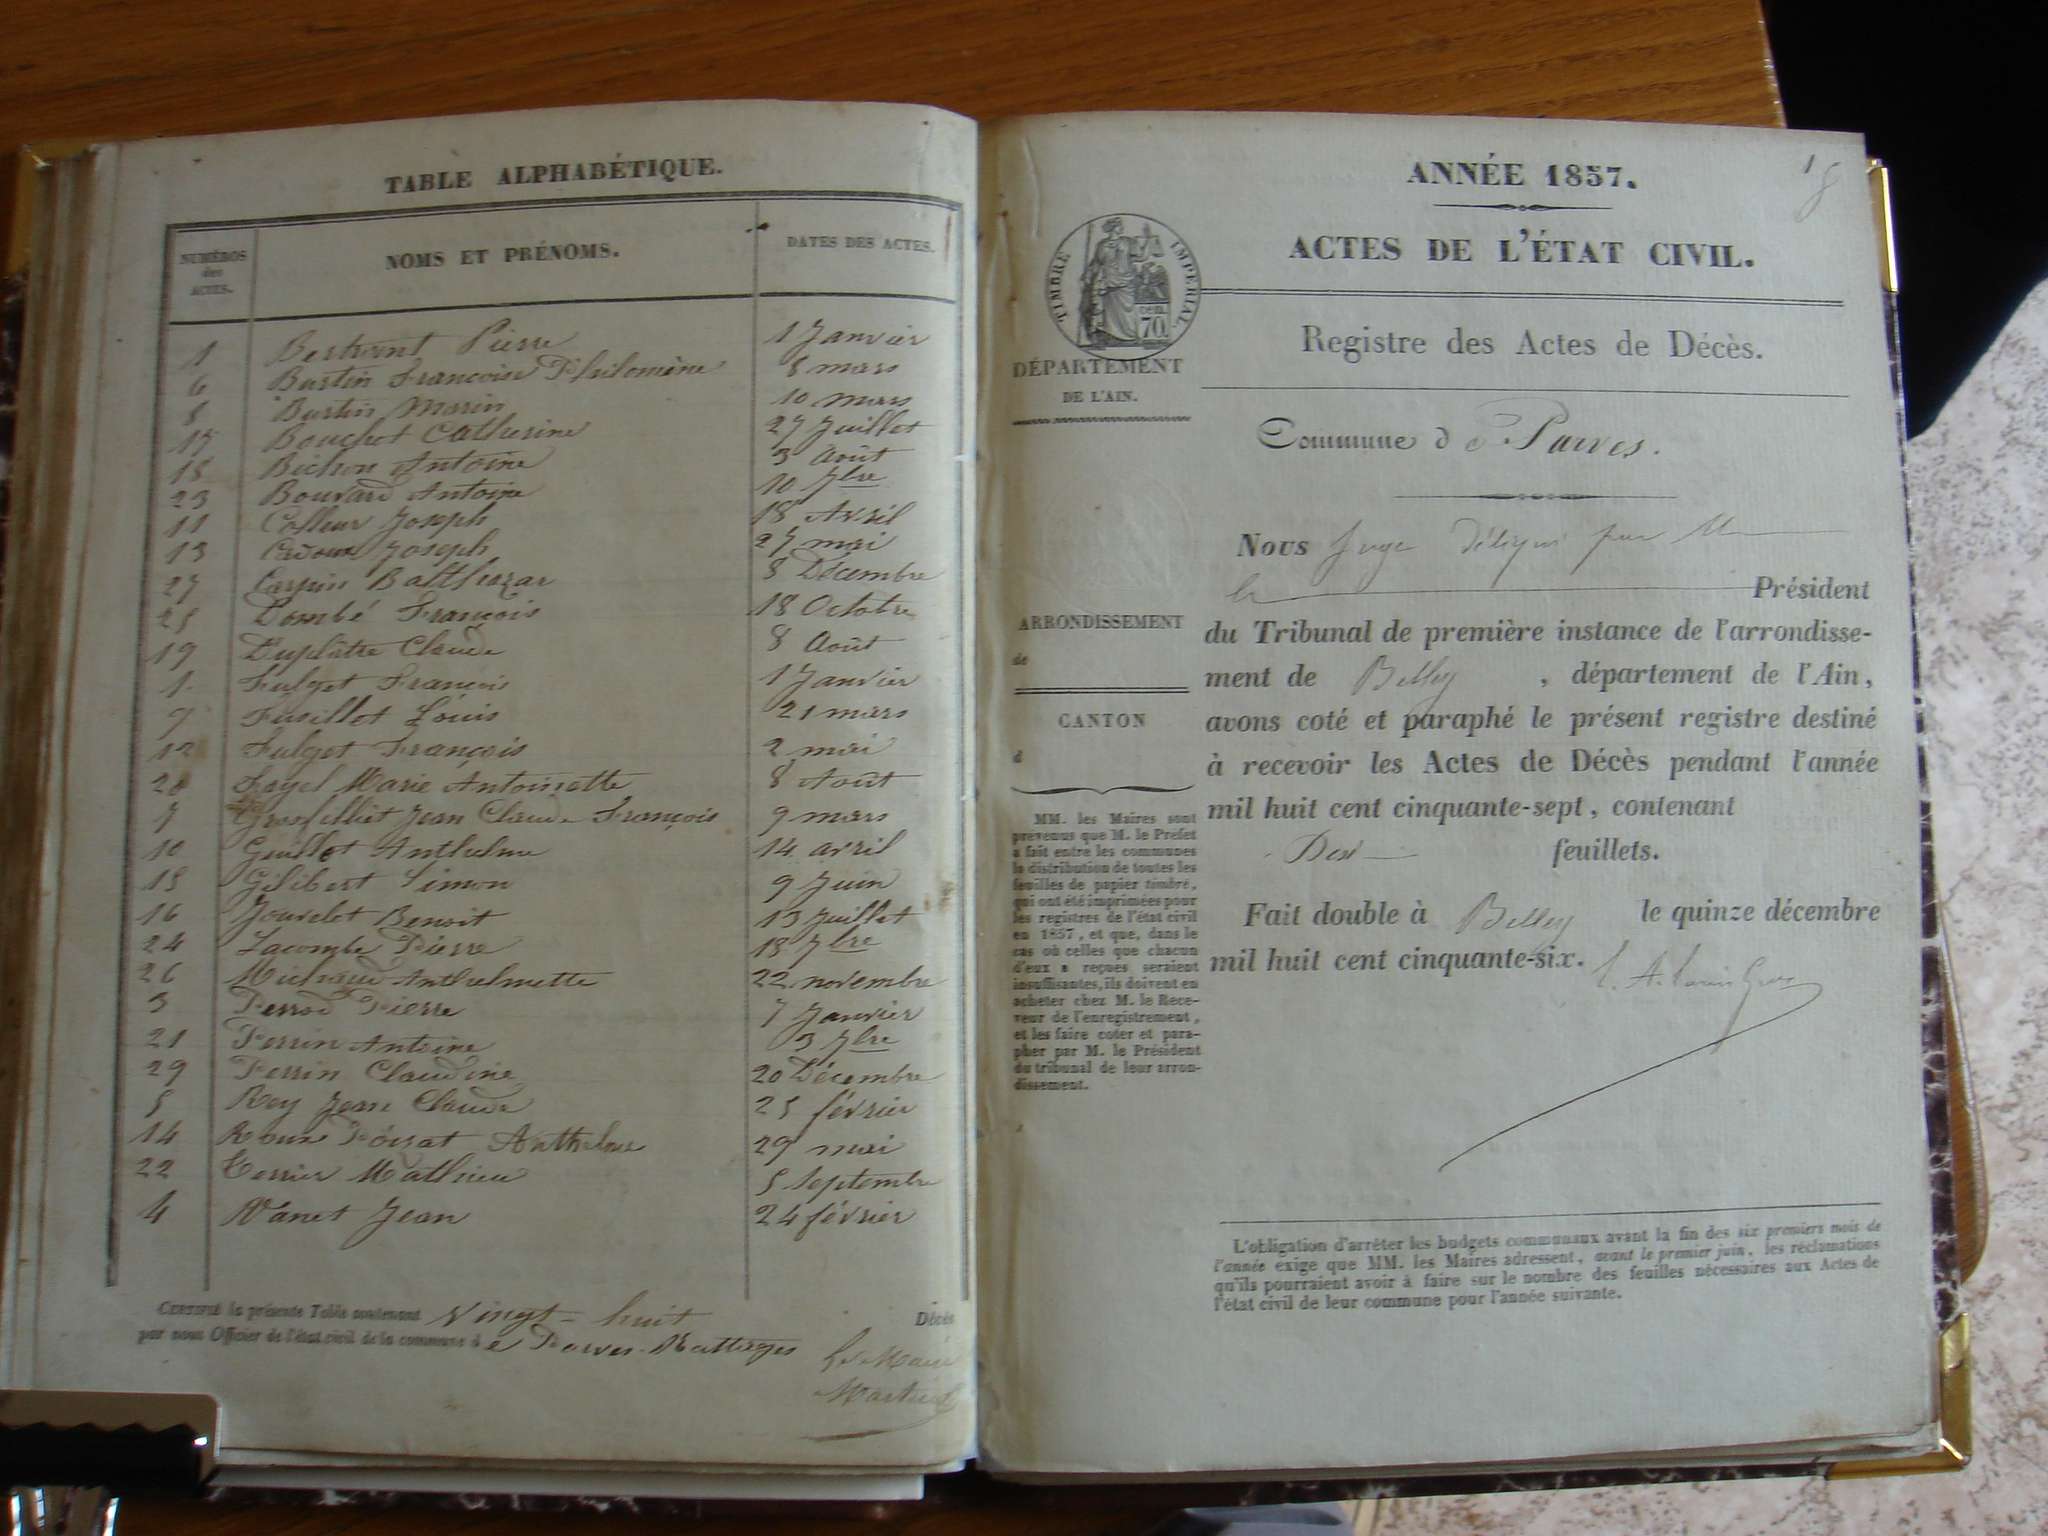 TABLE ALPHABÉTIQUE.
NUMÉROS des ACTES. NOMS ET PRÉNOMS. DATES DES ACTES.
1 Bertrant Pierre 1 Janvier
6 Burtin Françoise Philomène 8 mars
8 Burtin Marin 10 mars
17 Bouchot Catherine 27 Juillet
18 Bichon Antoine 3 Août
23 Bouvard Antoine 10 7bre
11 Colleur Joseph 18 Avril
13 Cadoux Joseph 27 mai
27 Carpin Balthazar 8 Décembre
25 Dombé François 18 Octobre
19 Duplâtre Claude 8 Août
1 Fulget François 1 Janvier
9 Fusillet Louis 21 mars
12 Fulget François 2 mai
20 Fayel Marie Antoinette 8 Août
7 Grosfilliet Jean Claude François 9 mars
10 Guillot Anthelme 14 avril
15 Gilibert Simon 9 Juin
16 Jouvelet Benoit 13 Juillet
24 Lacombe Pierre 18 7bre
26 Michaud Anthelmette 22 novembre
3 Perrod Pierre 7 Janvier
21 Perrin Antoine 3 7bre
29 Perrin Claudine 20 Décembre
5 Rey Jean Claude 25 février
14 Roux Anthelme 29 mai
22 Terrier Mathieu 5 Septembre
4 Vanet Jean 24 février
CERTIFIÉ la présente Table contenant Vingt-huit Décès
par nous Officier de l'état civil de la commune d e Parves-Nattages
Le Maire
ANNÉE 1857.
ACTES DE L'ÉTAT CIVIL.
TIMBRE IMPÉRIAL.
70
DÉPARTEMENT
DE L'AIN.
Registre des Actes de Décès.
Commune d e Parves.
ARRONDISSEMENT
de
CANTON
d
MM. les Maires sont
prévenus que M. le Préfet
a fait entre les communes
la distribution de toutes les
feuilles de papier timbré,
qui ont été imprimées pour
les registres de l'état civil
en 1857, et que, dans le
cas où celles que chacun
d'eux a reçues seraient
insuffisantes, ils doivent en
acheter chez M. le Rece-
veur de l'enregistrement,
et les faire coter et para-
pher par M. le Président
du tribunal de leur arron-
dissement.
Nous Juge délégué par M
le Président
du Tribunal de première instance de l'arrondisse-
ment de Belley, département de l'Ain,
avons coté et paraphé le présent registre destiné
à recevoir les Actes de Décès pendant l'année
mil huit cent cinquante-sept, contenant
feuillets.
Fait double à Belley le quinze décembre
mil huit cent cinquante-six.
L'obligation d'arrêter les budgets communaux avant la fin des six premiers mois de
l'année exige que MM. les Maires adressent, avant le premier juin, les réclamations
qu'ils pourraient avoir à faire sur le nombre des feuilles nécessaires aux Actes de
l'état civil de leur commune pour l'année suivante.